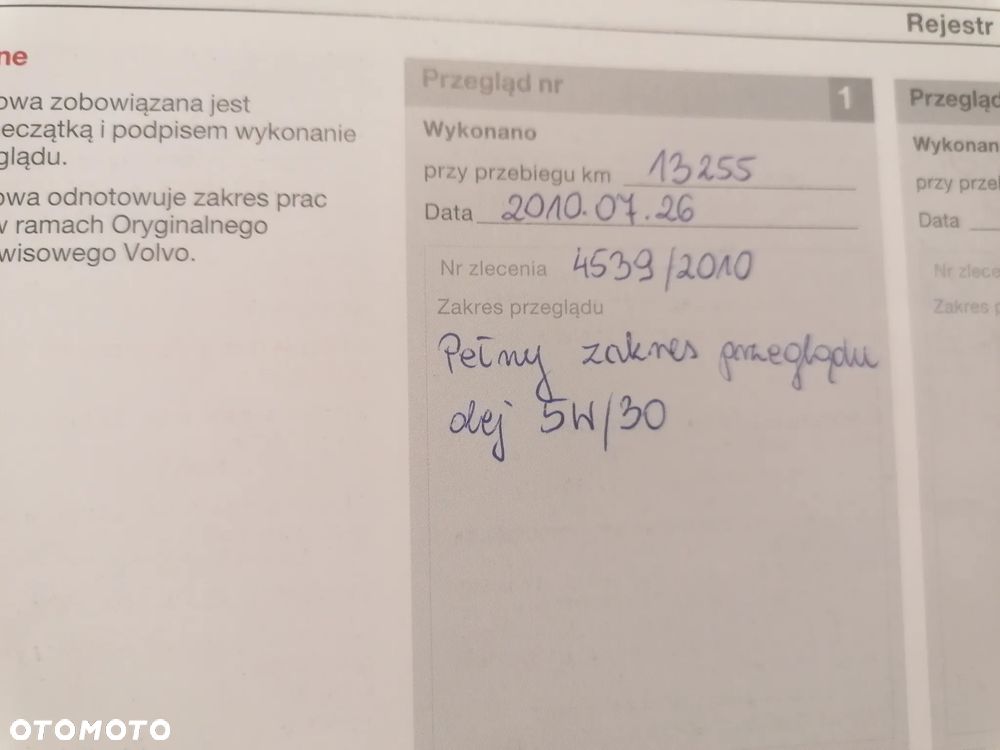 Rejestr
ne
owa zobowiązana jest
eczątką i podpisem wykonanie
glądu.
owa odnotowuje zakres prac
w ramach Oryginalnego
wisowego Volvo.
Przegląd nr 1
Wykonano
przy przebiegu km 13255
Data 2010.07.26
Nr zlecenia 4539/2010
Zakres przeglądu
Pełny zakres przeglądu
olej 5W/30
Przegląd
Wykonan
przy przeb
Data
Nr zlece
Zakres p
OTOMOTO